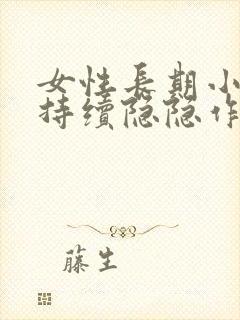 女性長期小
持續隐隐作
藤生